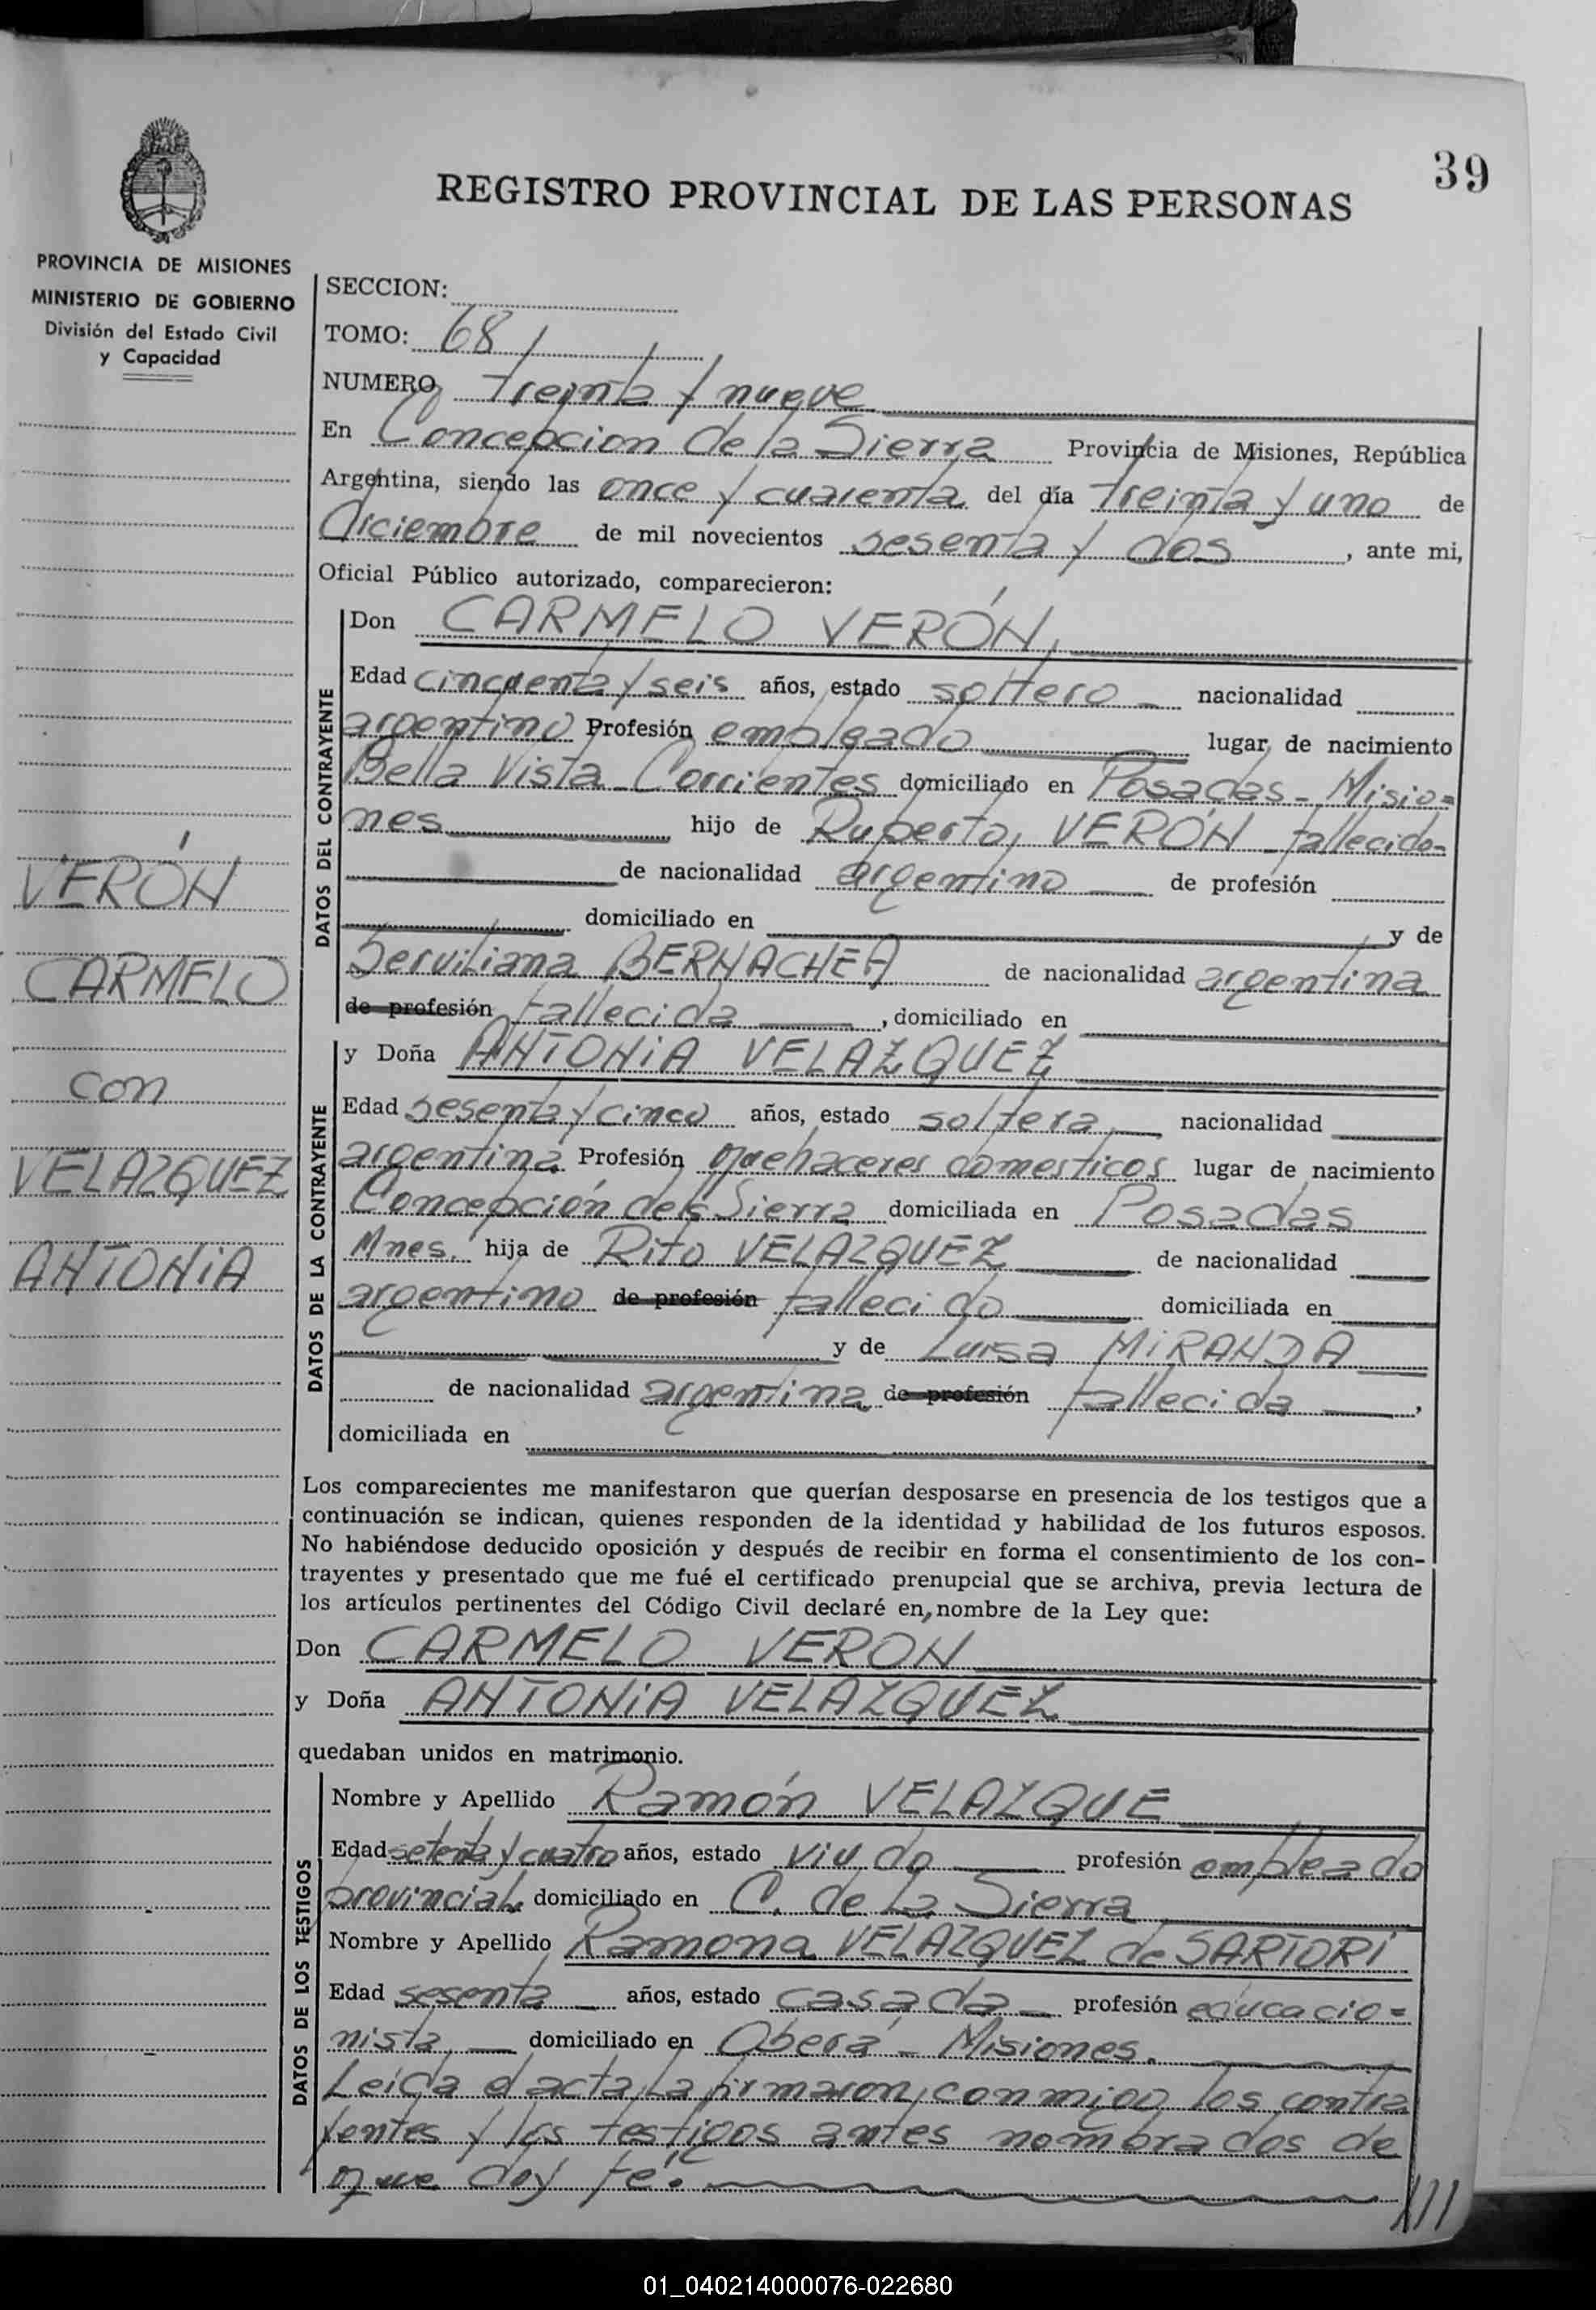 39
REGISTRO PROVINCIAL DE LAS PERSONAS
PROVINCIA DE MISIONES
MINISTERIO DE GOBIERNO
División del Estado Civil
y Capacidad
VERÓN
CARMELO
con
VELAZQUEZ
ANTONIA
SECCION:
TOMO: 68
NUMERO treinta y nueve
En Concepcion de la Sierra Provincia de Misiones, República
Argentina, siendo las once y cuarenta del día treinta y uno de
diciembre de mil novecientos sesenta y dos, ante mi,
Oficial Público autorizado, comparecieron:
DATOS DEL CONTRAYENTE
Don CARMELO VERÓN,
Edad cincuenta y seis años, estado soltero - nacionalidad
argentino Profesión empleado lugar de nacimiento
Bella Vista - Corrientes domiciliado en Posadas - Misio=
nes hijo de Ruperto VERÓN - fallecido-
de nacionalidad argentino de profesión
domiciliado en y de
Serviliana BERNACHEA de nacionalidad argentina
de profesión fallecida, domiciliado en
DATOS DE LA CONTRAYENTE
y Doña ANTONIA VELAZQUEZ
Edad sesenta y cinco años, estado soltera, nacionalidad
argentina Profesión quehaceres domesticos lugar de nacimiento
Concepción de la Sierra domiciliada en Posadas
Mnes. hija de Rito VELAZQUEZ de nacionalidad
argentino de profesión fallecido domiciliada en
y de Luisa MIRANDA
de nacionalidad argentina de profesión fallecida,
domiciliada en
Los comparecientes me manifestaron que querían desposarse en presencia de los testigos que a
continuación se indican, quienes responden de la identidad y habilidad de los futuros esposos.
No habiéndose deducido oposición y después de recibir en forma el consentimiento de los con-
trayentes y presentado que me fué el certificado prenupcial que se archiva, previa lectura de
los artículos pertinentes del Código Civil declaré en nombre de la Ley que:
Don CARMELO VERÓN
y Doña ANTONIA VELAZQUEZ
quedaban unidos en matrimonio.
DATOS DE LOS TESTIGOS
Nombre y Apellido Ramón VELAZQUE
Edad setenta y cuatro años, estado viudo profesión empleado
provincial, domiciliado en C. de la Sierra
Nombre y Apellido Ramona VELAZQUEZ de SARTORI
Edad sesenta - años, estado casada - profesión educacio=
nista, domiciliado en Oberá - Misiones.
Leida el acta, la firmaron, conmigo, los contra
yentes y los testigos antes nombrados de
que doy fé.
01_040214000076-022680